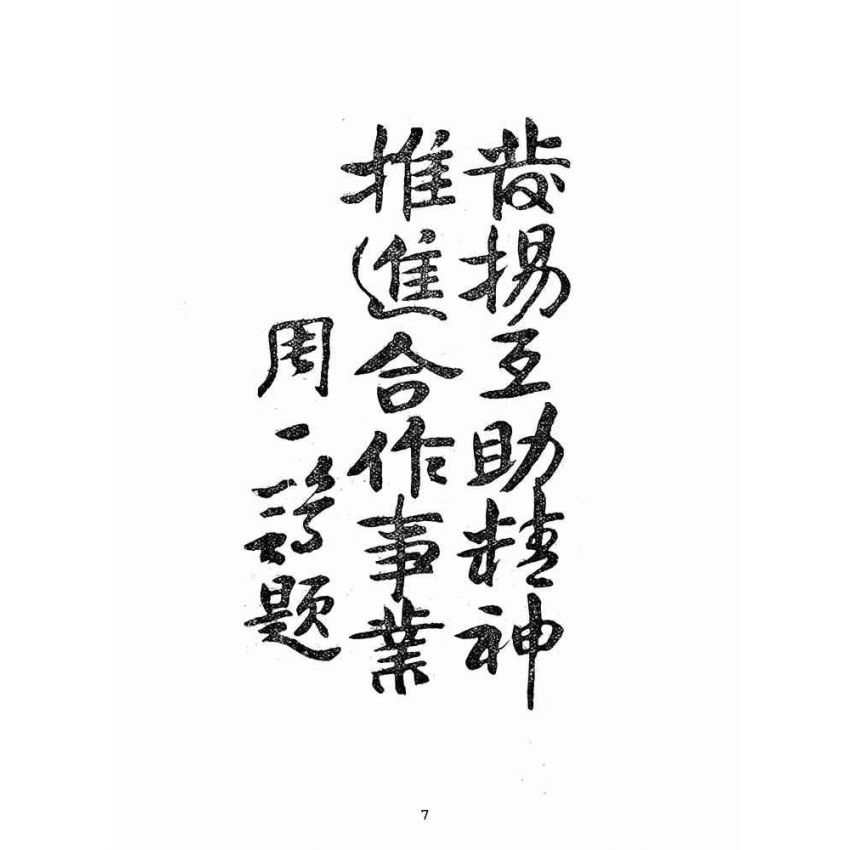 發揚互助精神
推進合作事業
周一鶚題
7